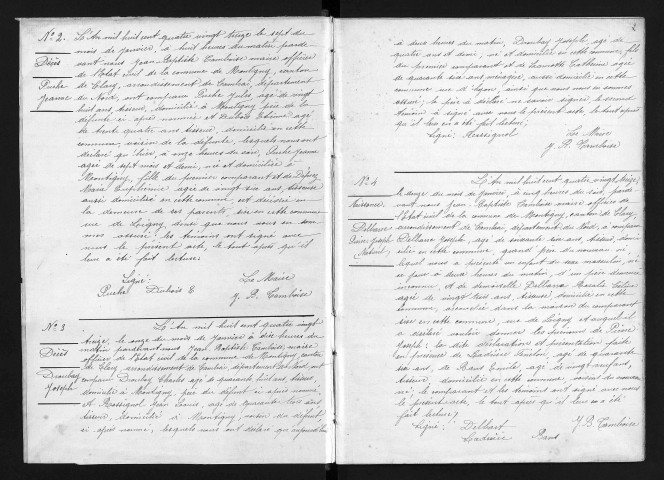 N° 2.
Décès
Puche
Jeanne
L'An mil huit cent quatre vingt treize le sept du
mois de Janvier, à huit heures du matin, par de
vant nous Jean Baptiste Tamboise maire officier
de l'Etat civil de la commune de Montigny, canton
de Clary, arrondissement de Cambrai, département
du Nord, ont comparu Puche Jules âgé de vingt
huit ans, tisseur, domicilié à Montigny, père de la
défunte ci après nommée et Dubois Etienne âgé
de trente quatre ans tisseur, domicilié en cette
commune, voisin de la défunte, lesquels nous ont
déclaré qu'hier, à onze heures du soir, Puche Jeanne
âgée de sept mois et demi, née et domiciliée à
Montigny, fille du premier comparant et de
Maria Euphrénie âgée de vingt six ans, tisseuse
aussi domiciliée en cette commune, est décédée en
la demeure de ses parents, sise en cette commune
rue de Ligny, ainsi que nous nous en som
mes assuré. les témoins ont signé avec
nous le présent acte, le tout après qu'il
leur en a été fait lecture.
Signé: Le Maire
Puche Dubois E J. B. Tamboise
N° 3
Décès
Drombay
Joseph
L'An mil huit cent quatre vingt
treize, le onze du mois de Janvier à dix heures du
matin pardevant nous Jean Baptiste Tamboise, maire
officier de l'Etat civil de la commune de Montigny, canton
de Clary, arrondissement de Cambrai, département du Nord, ont
comparu Drombay Charles âgé de quarante huit ans, tisseur
domicilié à Montigny, père du défunt ci après nommé
et Rossignol Jean Louis, âgé de quarante trois ans
tisseur, domicilié à Montigny, voisin du défunt
ci après nommé, lesquels nous ont déclaré qu'aujourd'hui
2
à deux heures du matin, Drombay Joseph, âgé de
quatre ans et demi, né et domicilié en cette commune, fils
du premier comparant et de Catherine âgée
de quarante six ans, ménagère, aussi domiciliée en cette
commune rue, ainsi que nous nous en sommes
assuré; le père a déclaré ne savoir signer, le second
témoin a signé avec nous le présent acte, le tout après
qu'il leur en a été fait lecture;
Signé: Rossignol Le Maire
J. B. Tamboise
N° 4
Naissance
Delbart
Naturel
L'An mil huit cent quatre vingt treize,
le douze du mois de Janvier, à cinq heures du soir, parde
vant nous Jean Baptiste Tamboise maire officier de
l'Etat civil de la commune de Montigny, canton de Clary,
arrondissement de Cambrai, département du Nord, a comparu
Delbart Joseph, âgé de soixante six ans, tisseur, domi
cilié en cette commune, grand père du nouveau né
lequel nous a présenté un enfant du sexe masculin, né
ce jour à deux heures du matin, d'un père demeuré
inconnu, et de demoiselle
âgée de vingt trois ans, tisseuse domiciliée en cette
commune, accouchée dans la maison du comparant
sise en cette commune, rue de Ligny et auquel il
a déclaré vouloir donner les prénoms de
Joseph; la dite déclaration et présentation faite
en présence de Ladisée, âgé de quarante
six ans, de Bans Emile, âgé de vingt neuf ans,
tisseur, domiciliés en cette commune, voisins du nouveau
né; le comparant et les témoins ont signé avec nous
le présent acte, le tout après qu'il leur en a été
fait lecture;
Signé: Delbart J. B. Tamboise
Ladisée Bans